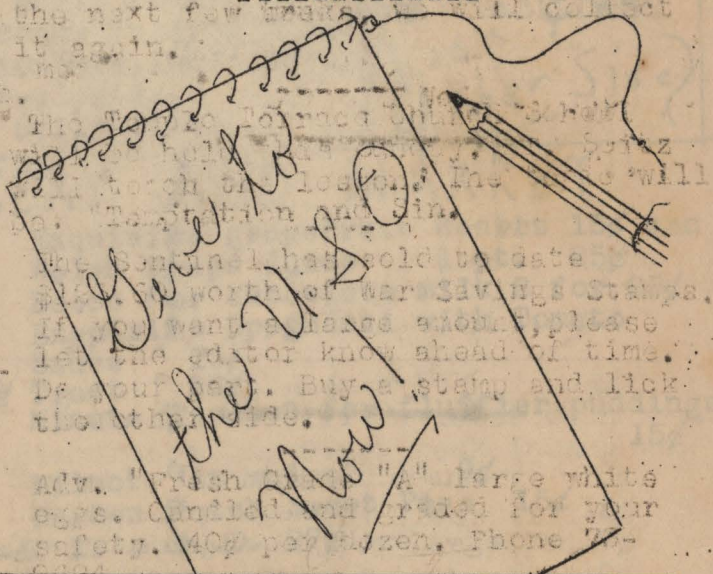 the next few weeks, we will collect
it again.
The Church School
will be held this Sunday. Seitz
will teach the lesson. The topic will
be: "Temptation and Sin.
The Sentinel has sold to date
worth of War Savings Stamps.
If you want a large amount, please
let the editor know ahead of time.
Do your part. Buy a stamp and lick
the other side.
Adv. "Fresh Grade "A" large white
eggs. Candled and graded for your
safety. 40¢ per dozen. Phone 78-
Give to
the USO
Now!
15¢